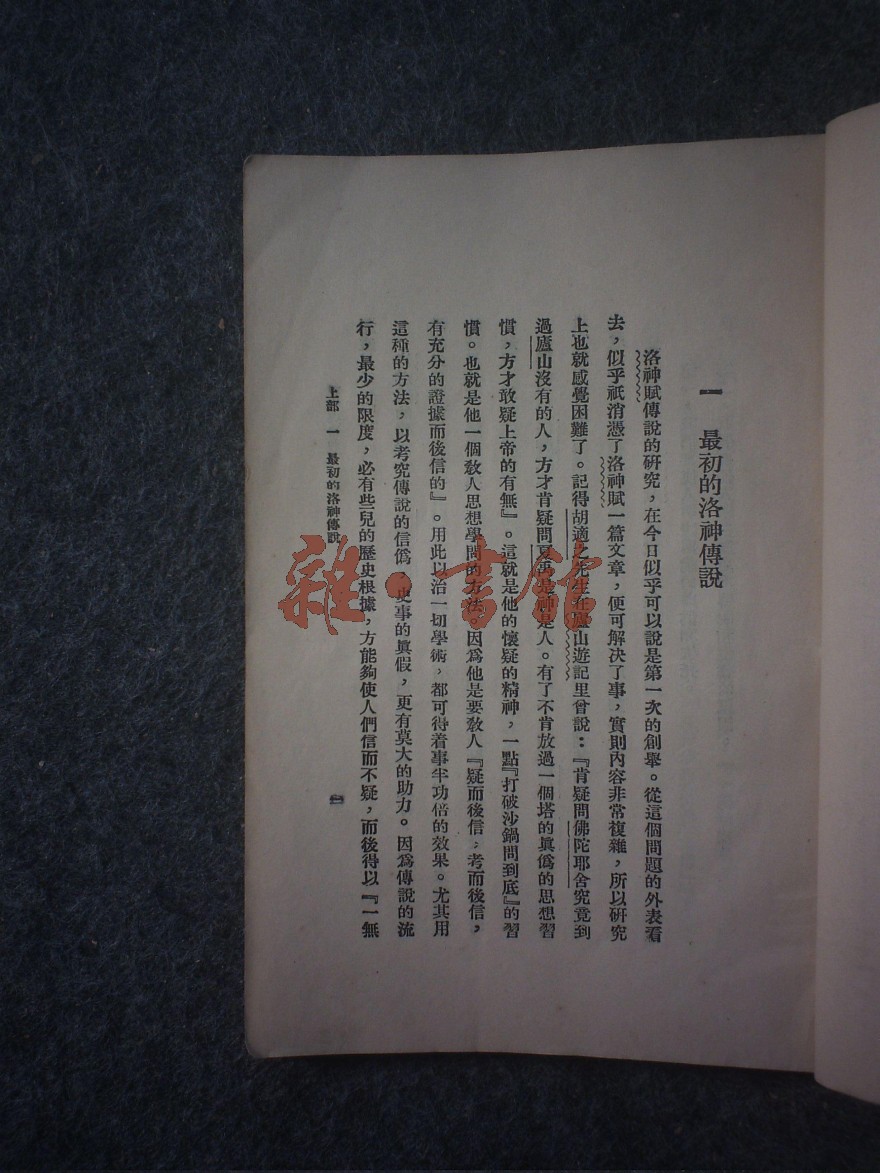 一　最初的洛神傳說
洛神賦傳說的研究，在今日似乎可以說是第一次的創舉。從這個問題的外表看
去，似乎祇消憑了洛神賦一篇文章，便可解決了事，實則內容非常複雜，所以研究
上也就感覺困難了。記得胡適之先生在廬山遊記里曾說：『肯疑問佛陀耶舍究竟到
過廬山沒有的人，方才肯疑問夏禹是神是人。有了不肯放過一個塔的眞僞的思想習
慣，方才敢疑上帝的有無』。這就是他的懷疑的精神，一點『打破沙鍋問到底』的習
慣。也就是他一個教人思想學問的方法。因爲他是要教人『疑而後信，考而後信，
有充分的證據而後信的』。用此以治一切學術，都可得着事半功倍的效果。尤其用
這種的方法，以考究傳說的信僞，史事的眞假，更有莫大的助力。因爲傳說的流
行，最少的限度，必有些兒的歷史根據，方能夠使人們信而不疑，而後得以『一無
上部　一　最初的洛神傳說
雜·書館